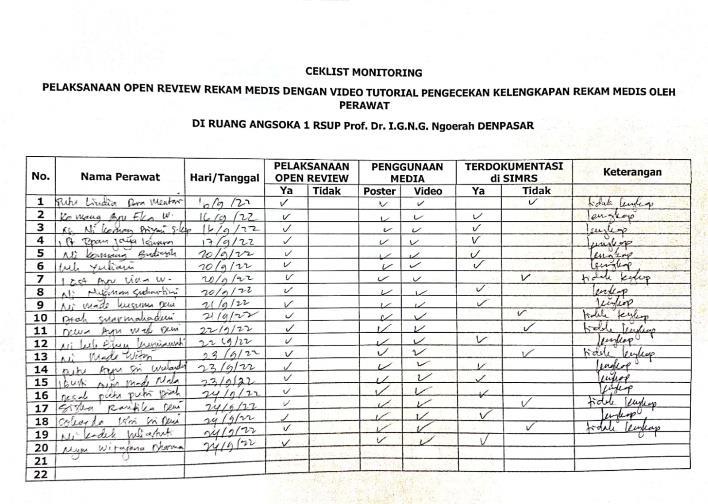 CEKLIST MONITORING
PELAKSANAAN OPEN REVIEW REKAM MEDIS DENGAN VIDEO TUTORIAL PENGECEKAN KELENGKAPAN REKAM MEDIS OLEH
PERAWAT
DI RUANG ANGSOKA 1 RSUP Prof. Dr. I.G.N.G. Ngoerah DENPASAR
No. Nama Perawat Hari/Tanggal PELAKSANAAN OPEN REVIEW PENGGUNAAN MEDIA TERDOKUMENTASI di SIMRS Keterangan
Ya Tidak Poster Video Ya Tidak
1 Putu ✓ ✓ ✓ ✓ tidak lengkap
2 Komang Ayu Eka W. 16/9/22 ✓ ✓ ✓ ✓ lengkap
3 Ni Komang 16/9/22 ✓ ✓ ✓ ✓ lengkap
4 17/9/22 ✓ ✓ ✓ ✓ lengkap
5 Ni 20/9/22 ✓ ✓ ✓ ✓ lengkap
6 20/9/22 ✓ ✓ ✓ ✓ lengkap
7 Ayu W. 20/9/22 ✓ ✓ ✓ ✓ tidak lengkap
8 Ni 20/9/22 ✓ ✓ ✓ ✓ lengkap
9 Ni Made Kusuma Dewi 21/9/22 ✓ ✓ ✓ ✓ lengkap
10 Diah 21/9/22 ✓ ✓ ✓ ✓ tidak lengkap
11 Dewa Ayu Dewi 22/9/22 ✓ ✓ ✓ ✓ tidak lengkap
12 Ni Luh 22/9/22 ✓ ✓ ✓ ✓ lengkap
13 Ni Made 23/9/22 ✓ ✓ ✓ ✓ tidak lengkap
14 Putu Ayu Sri 23/9/22 ✓ ✓ ✓ ✓ lengkap
15 Made 23/9/22 ✓ ✓ ✓ ✓ lengkap
16 Desak Putu Putri Diah 24/9/22 ✓ ✓ ✓ ✓ lengkap
17 Siska Kartika Dewi 24/9/22 ✓ ✓ ✓ ✓ tidak lengkap
18 Dewi 24/9/22 ✓ ✓ ✓ ✓ lengkap
19 Ni Kadek 24/9/22 ✓ ✓ ✓ ✓ tidak lengkap
20 24/9/22 ✓ ✓ ✓ ✓
21
22